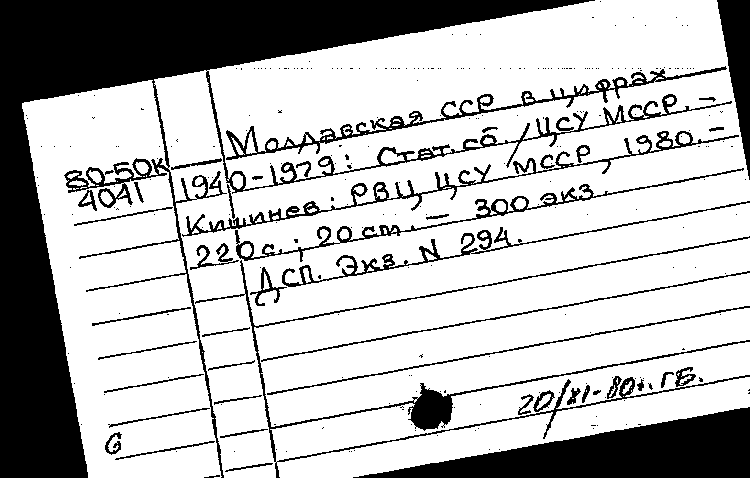 Молдавская ССР в цифрах
80-50К
4041
1940-1979: Стат. сб. / ЦСУ МССР. –
Кишинев: РВЦ ЦСУ МССР, 1980. –
220 с.; 20 см. – 300 экз.
ДСП. Экз. N 294.
20/XI-80г. ГБ.
6